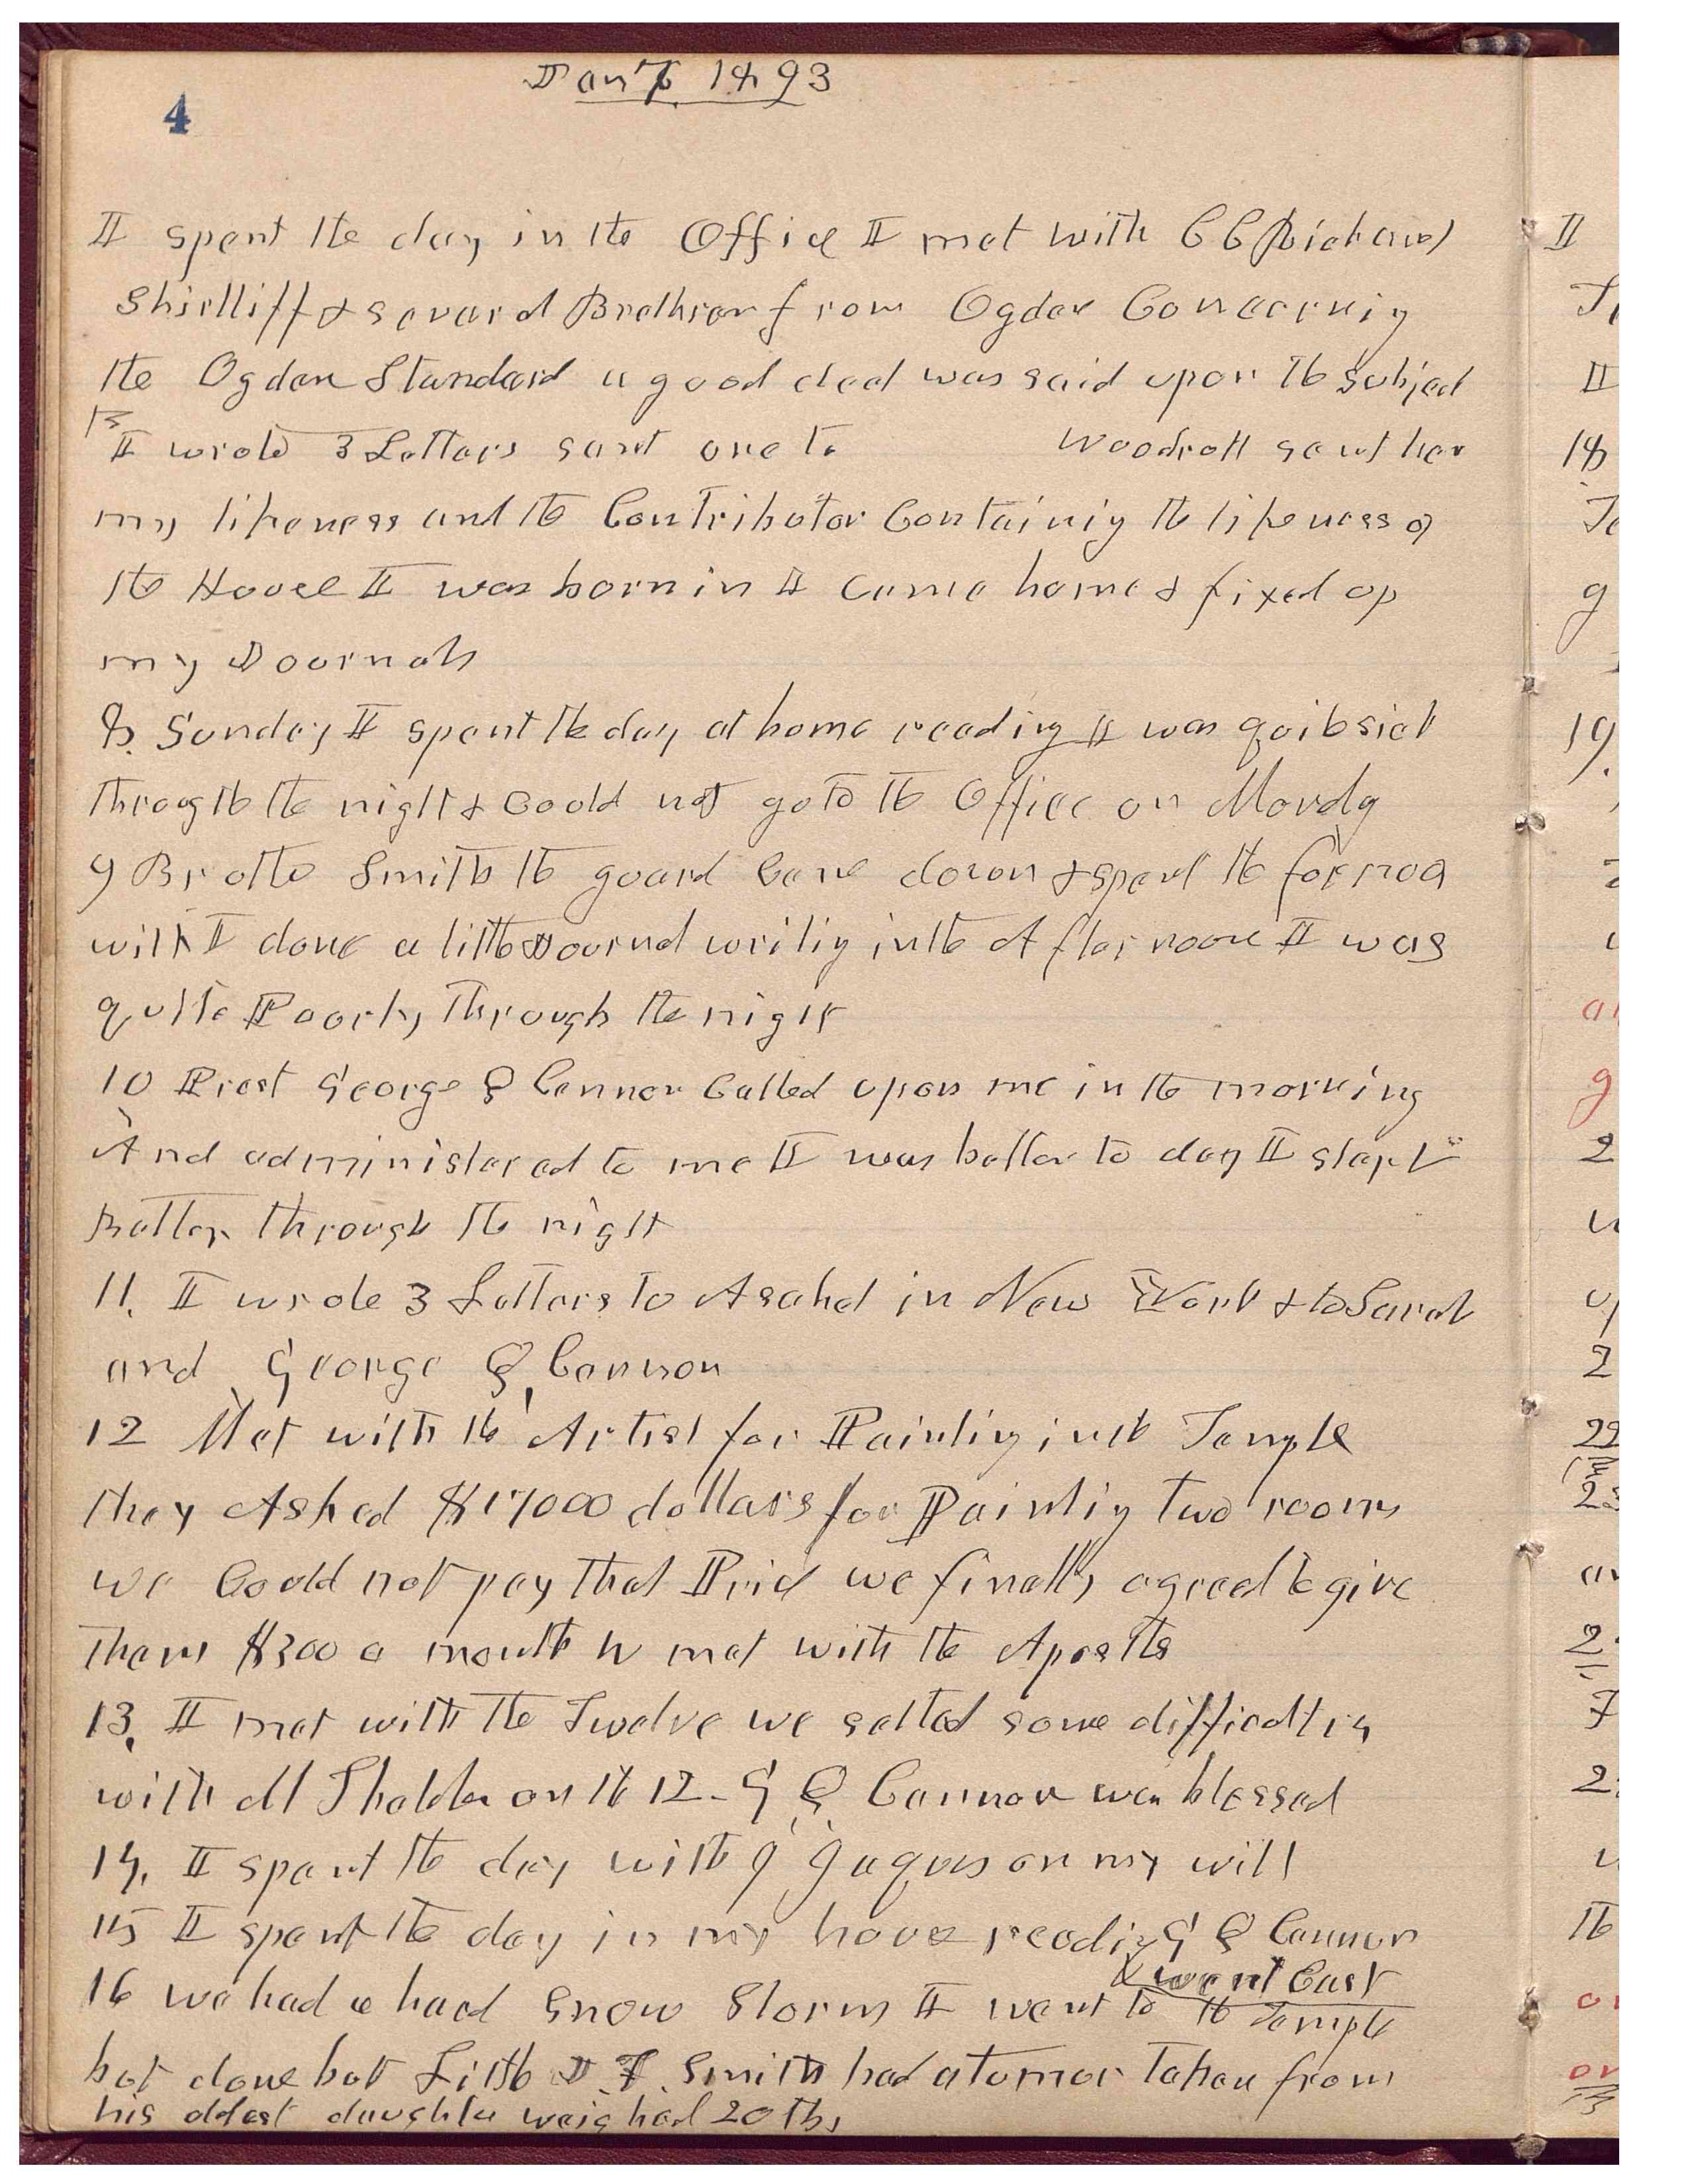 Jan 7 1893
4
I spent the day in the Office I met with C C Richards
Shirlliff & several Brethren from Ogden Concerning
the Ogden Standard a good deal was said upon the subject
I wrote 3 Letters sent one to Woodruff sent her
my likeness and the Contributor Containing the likeness of
the House I was born in I came home & fixed up
my Journals
8. Sunday I spent the day at home reading I was quite sick
through the night & Could not go to the Office on Monday
9 Brother Smith the guard Came down & spent the forenoon
with I done a little Journal writing in the Afternoon I was
quite Poorly through the night
10 Prest George Q Cannon Called upon me in the morning
And administered to me I was better to day I slept
Better through the night
11. I wrote 3 Letters to Asahel in New York & to Sarah
and George Q Cannon
12 Met with the Artist for Painting in the Temple
They Asked $17000 dollars for Painting Two rooms
we Could not pay that Price we finally agreed to give
them $300 a month W met with the Apostles
13. I met with the Twelve we settled some difficulties
with M Thatcher on the 12 - G Q Cannon was blessed
14. I spent the day with J Jaques on my will
15 I spent the day in my house reading G Q Cannon
& went East
16 we had a hard Snow Storm I went to the Temple
but done but Little J. F. Smith had a tumor Taken from
his oldest daughter weighed 20 lbs